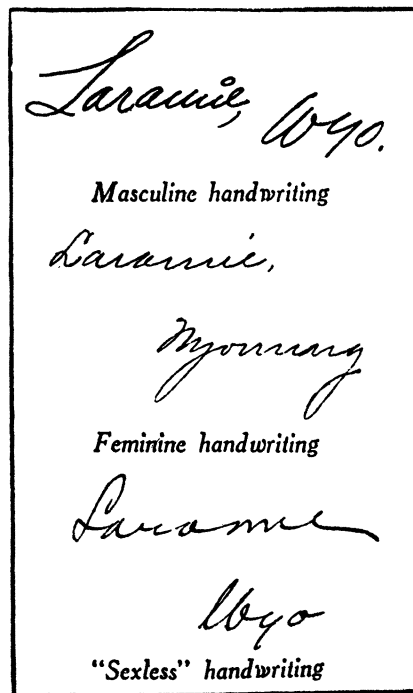 Laramie,
Wyo.
Masculine handwriting
Laramie,
Wyoming
Feminine handwriting
Laramie
Wyo
"Sexless" handwriting